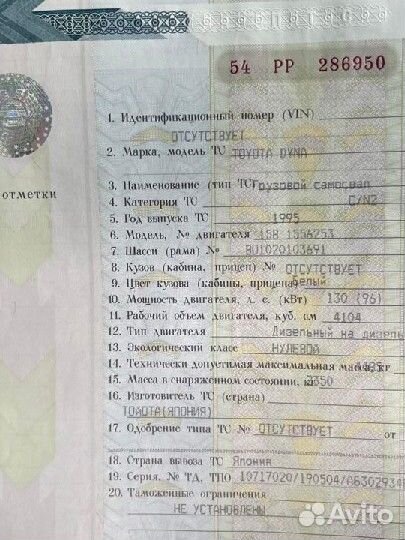 54 РР 286950
1. Идентификационный номер (VIN)
ОТСУТСТВУЕТ
2. Марка, модель ТС TOYOTA DYNA
отметки
3. Наименование (тип ТС) Грузовой самосвал
4. Категория ТС C/N2
5. Год выпуска ТС 1995
6. Модель, № двигателя 15B 1356253
7. Шасси (рама) № BU1020103691
8. Кузов (кабина, прицеп) № ОТСУТСТВУЕТ
9. Цвет кузова (кабины, прицепа) белый
10. Мощность двигателя, л. с. (кВт) 130 (96)
11. Рабочий объем двигателя, куб. см 4104
12. Тип двигателя Дизельный на дизель
13. Экологический класс НУЛЕВОЙ
14. Технически допустимая максимальная масса, кг
15. Масса в снаряженном состоянии, кг
16. Изготовитель ТС (страна)
ТОЙОТА(ЯПОНИЯ)
17. Одобрение типа ТС № ОТСУТСТВУЕТ от
18. Страна вывоза ТС Япония
19. Серия, № ТД, ТПО 10717020/190504/АБ302934
20. Таможенные ограничения
НЕ УСТАНОВЛЕНЫ
Avito